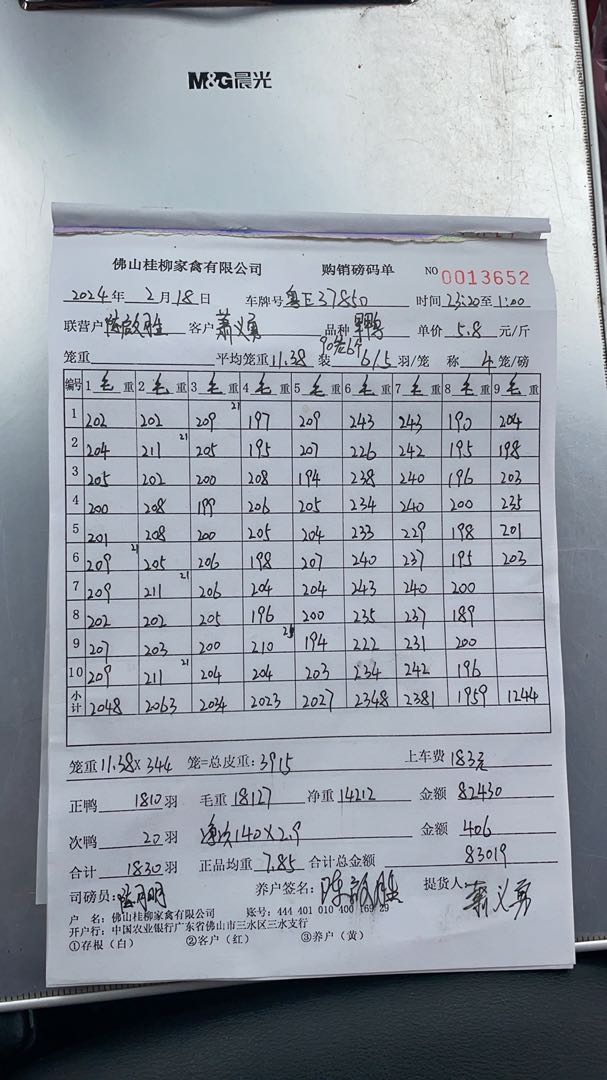 M&G晨光
佛山桂柳家禽有限公司 购销磅码单 NO 0013652
2024年 2月18日 车牌号 粤E37850 时间 23:20至 1:00
联营户 客户 萧义勇 品种 单价 5.8 元/斤
笼重 平均笼重 11.38 装 6/5 羽/笼 称 4 笼/磅
编号 1 毛 重 2 毛 重 3 毛 重 4 毛 重 5 毛 重 6 毛 重 7 毛 重 8 毛 重 9 毛 重
1 202 202 209 21 197 209 243 243 190 204
2 204 211 21 205 195 207 226 242 195 198
3 205 202 200 208 194 238 240 196 203
4 200 208 199 206 205 234 240 200 235
5 201 208 200 205 204 233 229 198 201
6 209 21 205 206 198 207 240 237 195 203
7 209 211 21 206 204 204 243 240 200
8 202 202 205 196 200 235 237 189
9 207 203 200 210 194 222 231 200
10 209 211 21 204 204 203 234 242 196
小计 2048 2063 2034 2023 2027 2348 2381 1959 1244
笼重 11.38 X 344 笼=总皮重: 3915 上车费 183元
正鸭 1810 羽 毛重 18127 净重 14212 金额 82430
次鸭 20 羽 140×2.9 金额 406
合计 1830 羽 正品均重 7.85 合计总金额 83019
司磅员: 养户签名: 陈 提货人: 萧义勇
户 名: 佛山桂柳家禽有限公司 账号: 444 401 010 400 169 29
开户行: 中国农业银行广东省佛山市三水区三水支行
①存根（白） ②客户（红） ③养户（黄）